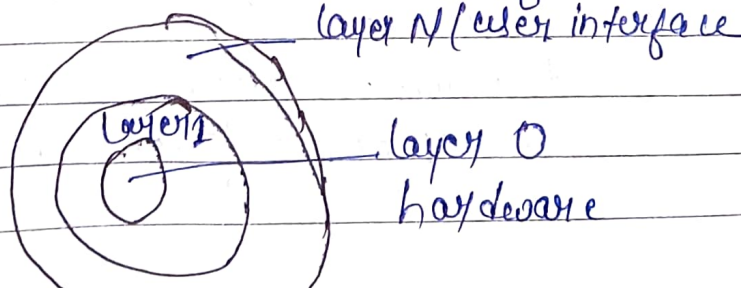 layer N (user interface
layer 1
layer 0
hardware